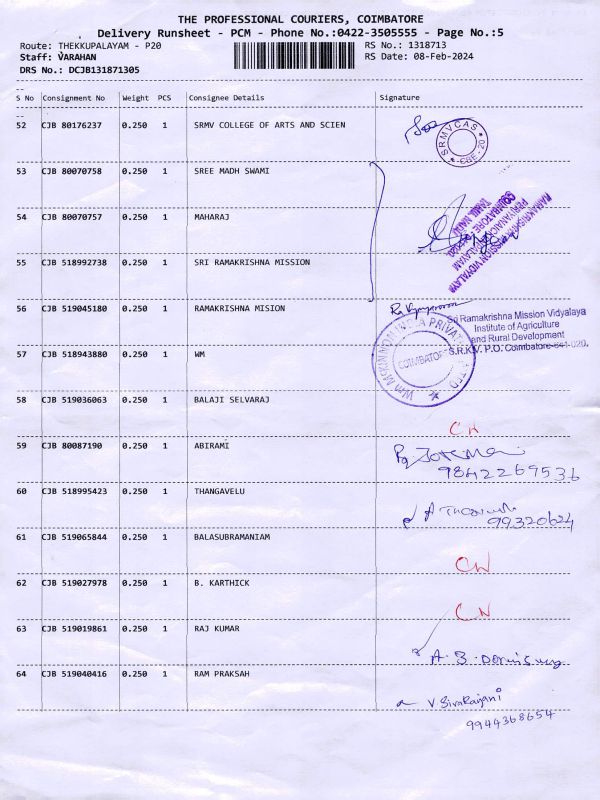 THE PROFESSIONAL COURIERS, COIMBATORE
Delivery Runsheet - PCM - Phone No.:0422-3505555 - Page No.:5
Route: THEKKUPALAYAM - P20 RS No.: 1318713
Staff: VARAHAN RS Date: 08-Feb-2024
DRS No.: DCJB131871305
S No Consignment No Weight PCS Consignee Details Signature
52 CJB 80176237 0.250 1 SRMV COLLEGE OF ARTS AND SCIEN
SRMVCAS CBE-20
53 CJB 80070758 0.250 1 SREE MADH SWAMI
54 CJB 80070757 0.250 1 MAHARAJ
RAMAKRISHNA MISSION VIDYALAYA
COIMBATORE
TAMIL NADU
55 CJB 518992738 0.250 1 SRI RAMAKRISHNA MISSION
56 CJB 519045180 0.250 1 RAMAKRISHNA MISION
Sri Ramakrishna Mission Vidyalaya
Institute of Agriculture
and Rural Development
S.R.K.V. P.O. Coimbatore-641-020.
57 CJB 518943880 0.250 1 WM
COIMBATORE
58 CJB 519036063 0.250 1 BALAJI SELVARAJ
59 CJB 80087190 0.250 1 ABIRAMI
9842269536
60 CJB 518995423 0.250 1 THANGAVELU
99320624
61 CJB 519065844 0.250 1 BALASUBRAMANIAM
62 CJB 519027978 0.250 1 B. KARTHICK
63 CJB 519019861 0.250 1 RAJ KUMAR
64 CJB 519040416 0.250 1 RAM PRAKSAH
V. Sivaranjani
9944368654